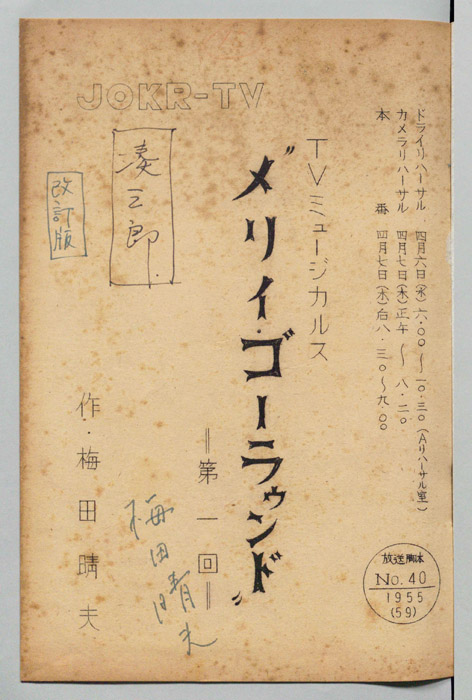 JOKR-TV
ドライリハーサル 四月六日(水)六.〇〇〜一〇.三〇(Aリハーサル室)
カメラリハーサル 四月七日(木)正午〜八.二〇
本番 四月七日(木)后八.三〇〜九.〇〇
TVミュージカルス
“メリイ・ゴーラウンド”
=第一回=
湊三郎
改訂版
作・梅田晴夫
梅田晴夫
放送脚本
No. 40
1955
(59)